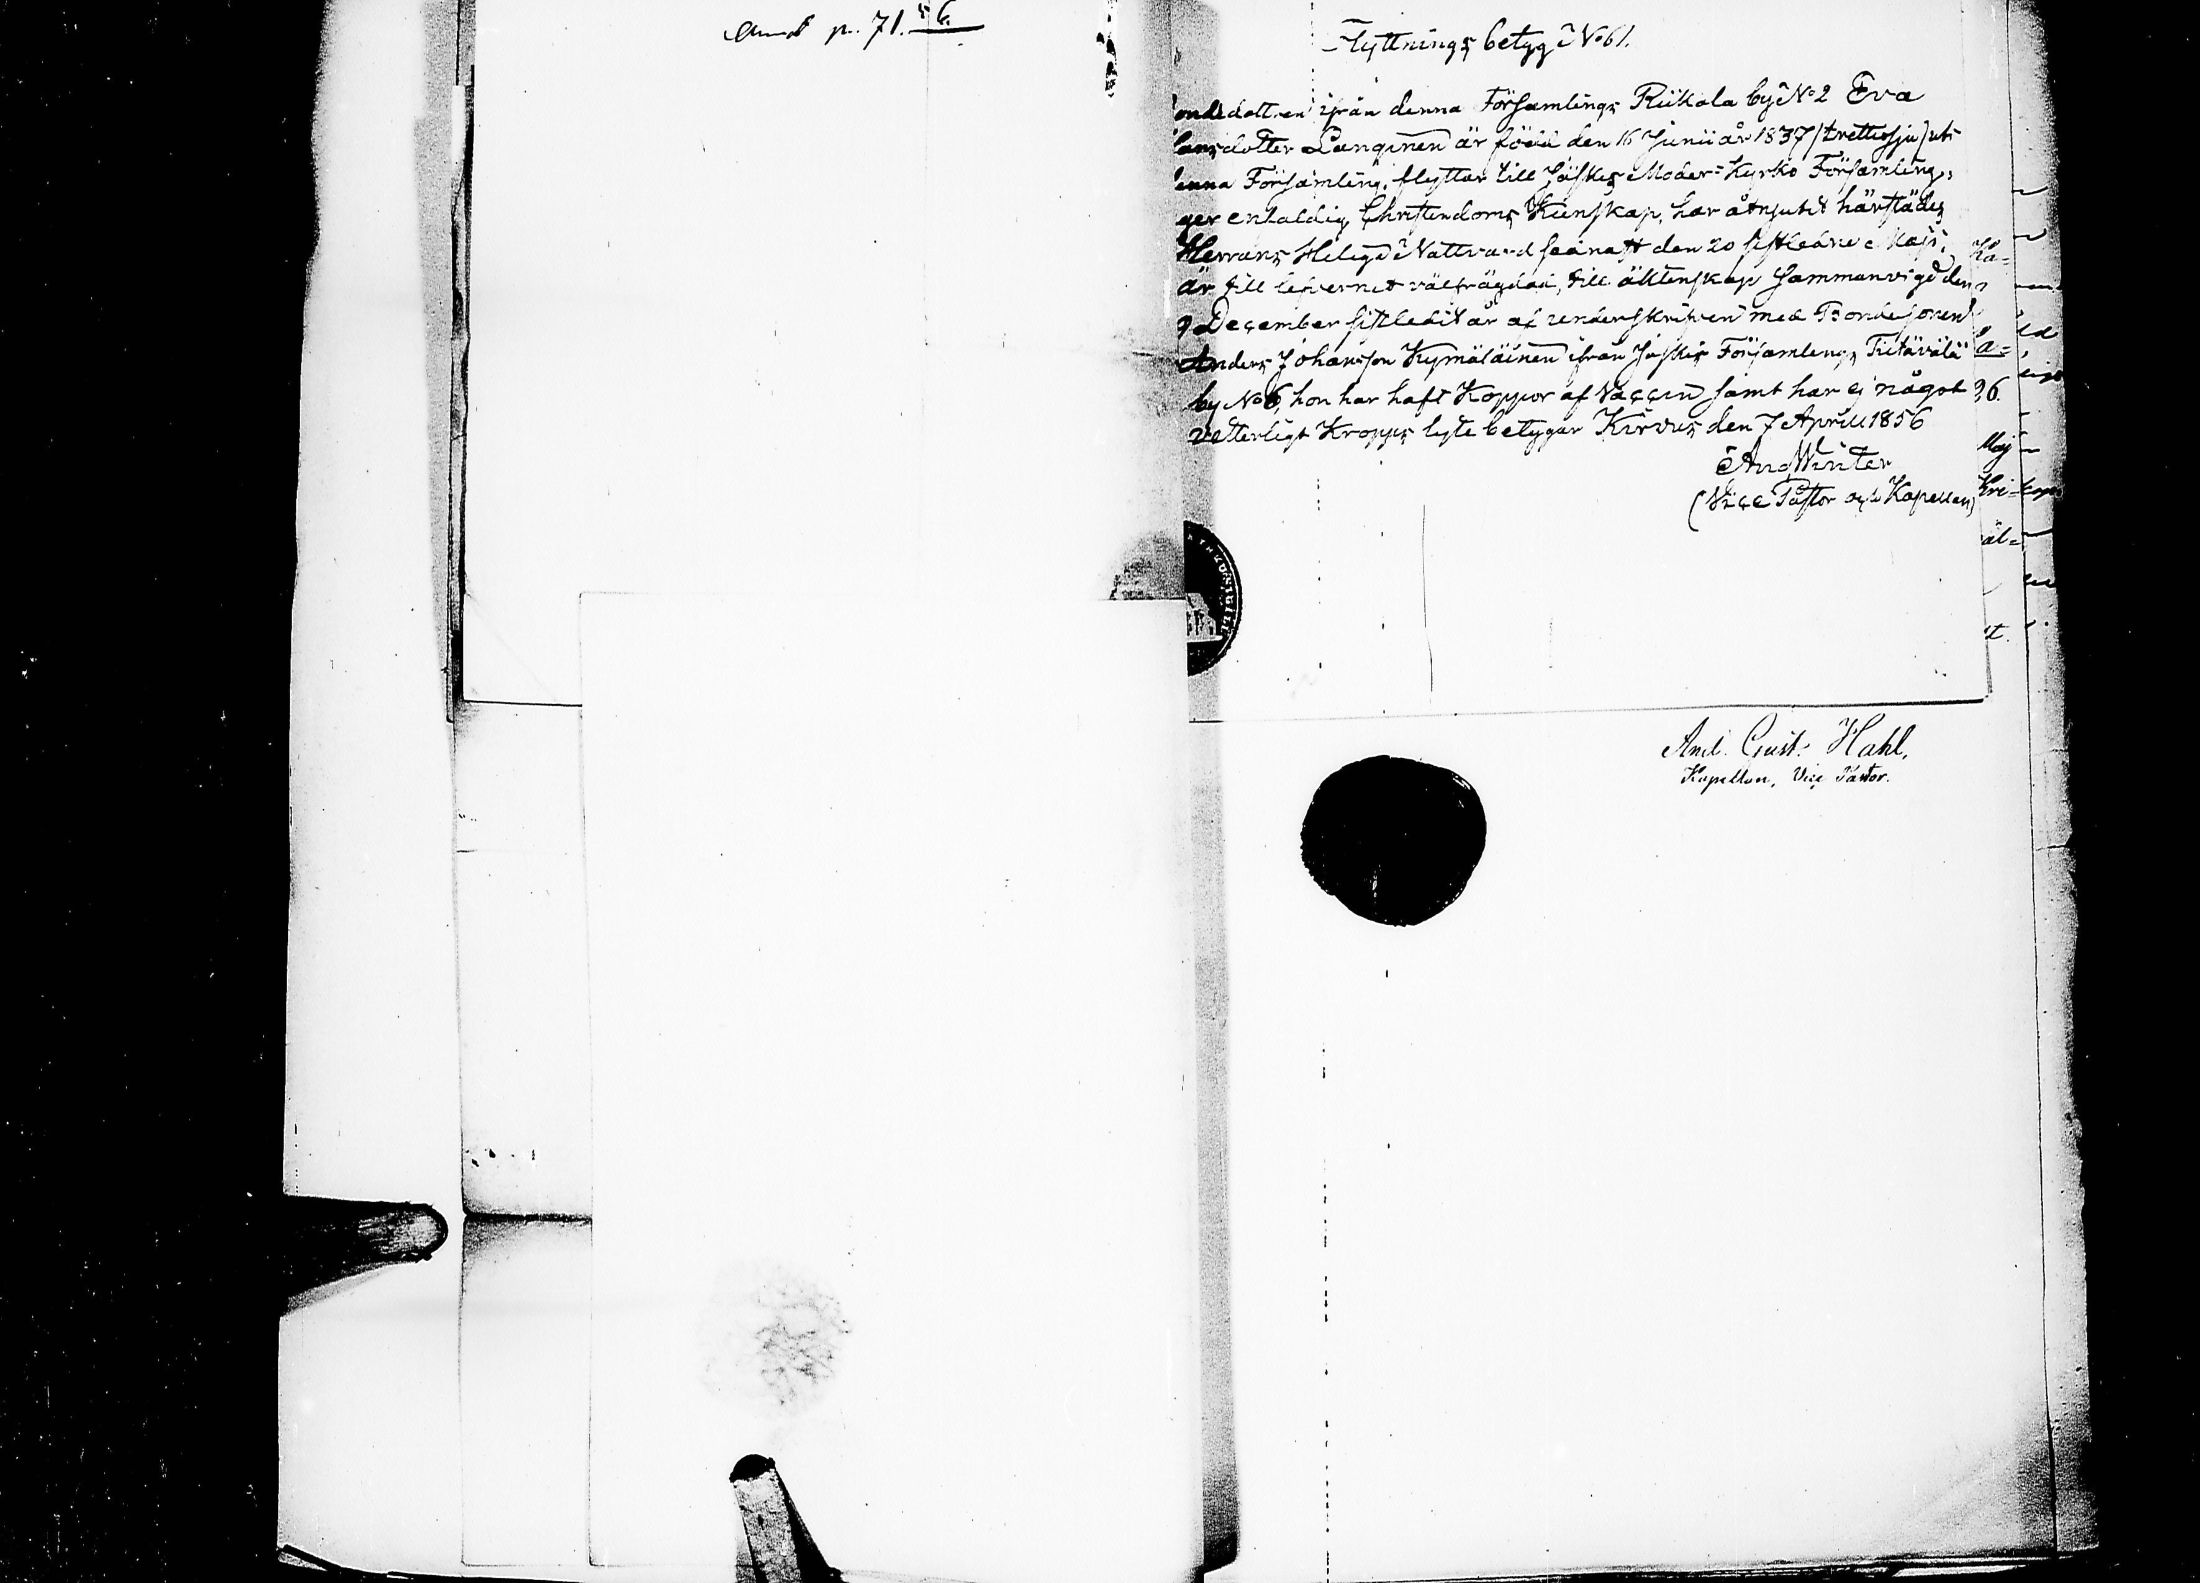 p. 71. 56.
Flyttnings betyg No 61.
ondedottren ifrån denna Församlings Rikola by No 2 Eva
dotter Langinen är född den 16 Junii år 1837 (trettiosju) uti
enna Församling, flyttar till Jäskis Moder-Kyrko Församling,
ger enfaldig Christendoms Kunskap, har åtnjutit härstädes
Herrans Heliga Nattvard senast den 20 sistledne Maji,
är till lefvernet välfrägdad, till äktenskap Sammanvigd den
9 December sistledit år af underskrifven med Bondesonen
Anders Johansson Kymäläinen ifrån Jäskis Församlings Tietävälä
by No 6, hon har haft Koppor af Vaccin samt har ej något
vetterligt Kropps lyte betygar Kirvus den 7 Aprill 1856
And Winter
(Vice Pastor och Kapellan)
Kä-
a-
96.
Maj
Kri-
äl-
t.
And. Gust. Hahl,
Kapellan, Vice Pastor.